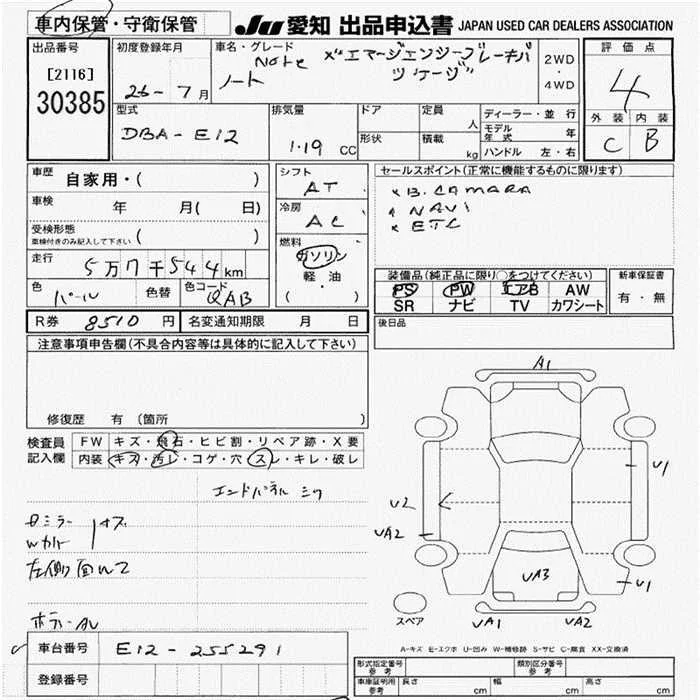 車内保管・守衛保管
JU 愛知 出品申込書 JAPAN USED CAR DEALERS ASSOCIATION
出品番号
[2116]
30385
初度登録年月
26-7月
車名・グレード
Note
ノート
X"エマージェンシーブレーキパ
ッケージ"
2WD
・
4WD
評価点
4
外装 内装
C B
型式
DBA-E12
排気量
1.19 CC
ドア
形状
定員
人
積載
kg
ディーラー・並行
モデル年式 年
ハンドル 左・右
車歴
自家用・( )
車検
年 月( 日)
受検形態
車検付きのみ記入して下さい ( )
走行
5万7千544km
色
パール
色替
色コード
QAB
シフト
AT
冷房
AC
燃料
ガソリン
軽・油
( )
セールスポイント(正常に機能するものに限ります)
× B.CAMARA
× NAVI
× ETC
装備品(純正品に限り○をつけてください)
PS PW エアB AW
SR ナビ TV カワシート
新車保証書
有・無
R券 8510円
名変通知期限 月 日
後日品
注意事項申告欄(不具合内容等は具体的に記入して下さい)
修復歴 有 (箇所 )
検査員
記入欄
FW キズ・飛石・ヒビ割・リペア跡・X要
内装 キズ・汚レ・コゲ・穴・スレ・キレ・破レ
エンドパネル
左側面W2
A1
U1
U2
UA2
UA3
U1
UA1
UA2
スペア
A-キズ E-エクボ U-凹み W-補修跡 S-サビ C-腐食 XX-交換済
車台番号
E12-255291
登録番号
形式指定番号
参考
類別区分番号
参考
車庫証明用
参考
長さ cm
幅 cm
高さ cm